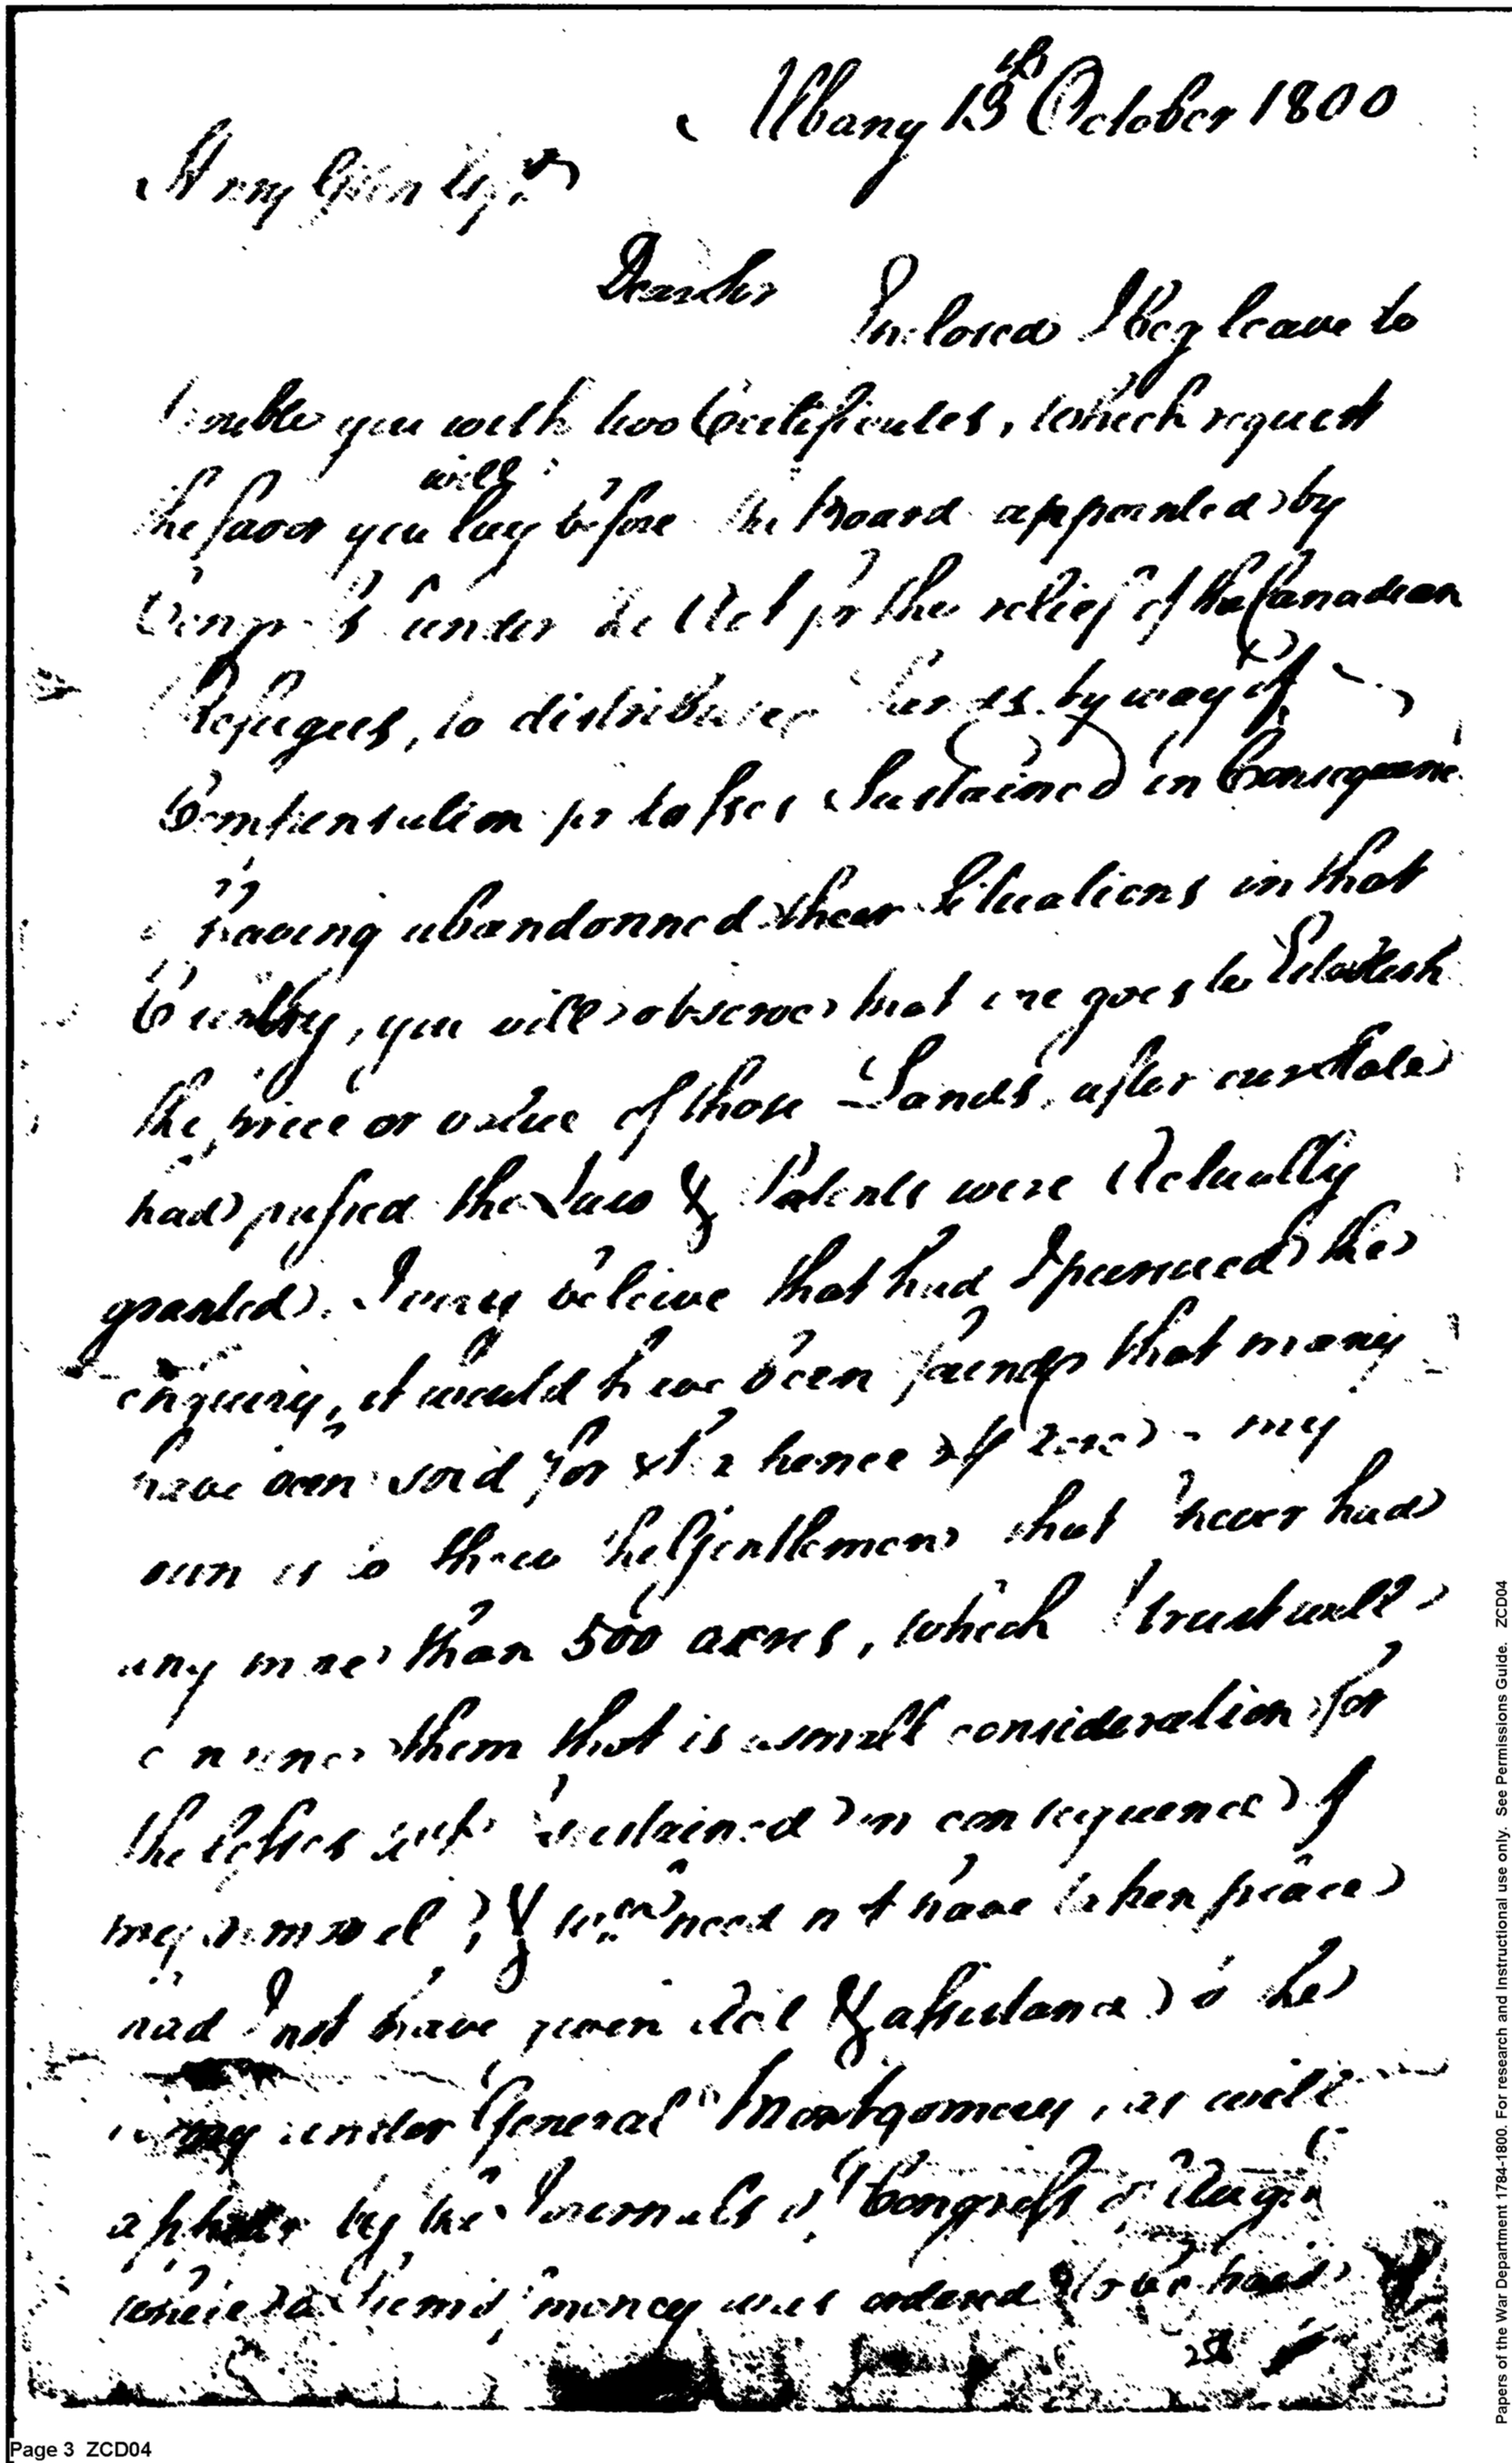 Albany 13th October 1800
Dear Sir
Inclosed I beg leave to
trouble you with two Certificates, which request
the favor you will lay before the Board appointed by
Congress under the Act for the relief of the Canadian
Refugees, to distribute Lands by way of
Compensation for Losses Sustained in Consequence
having abandonned their Situations in that
Country, you will observe that one goes to Establish
the price or value of those Lands, after our State
had passed the Law & Patents were Actually
granted. I very beleive that had I persued the
enquiry, it would have been found that many
have been sold for hence my
own is to shew the Gentlemen that never had
any more than 500 acres, which I trust will
convince them that is a small consideration for
the losses sustained in consequence of
my removel, & need not have taken place
had I not have given Aid & assistance to the
army under General Montgomery, as will
appear by the Journals of Congress
where a Sum of money was ordered to be paid
Page 3 ZCD04
Papers of the War Department 1784-1800. For research and Instructional use only. See Permissions Guide. ZCD04